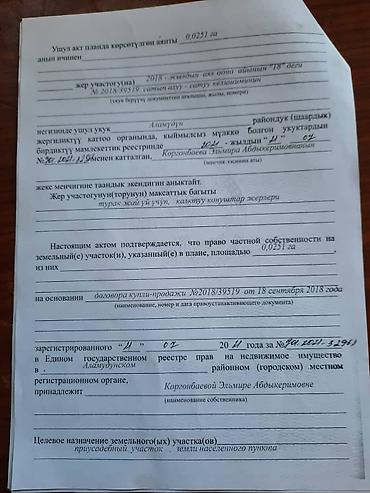 Ушул акт планда көрсөтүлгөн аянты 0,0251 га
анын ичинен
2018 - жылдын аяк оона айынын "18" деги
жер участогу(на) № 2018/39519 сатып алуу - сатуу келишиминин
(укук берүүчү документтин аталышы, жылы, номери)
негизинде ушул укук Аламүдүн райондук (шаардык)
жергиликтүү каттоо органында, кыймылсыз мүлккө болгон укуктардын
бирдиктүү мамлекеттик реестринде 2021 - жылдын " 11 " 02
менен катталган. Коргонбаева Эльмира Абдыкеримовнанын
(менчик ээсинин аты)
жеке менчигине таандык экендигин аныктайт.
Жер участогунун(торунун) максаттык багыты
турак жай үй үчүн, калктуу конуштар жерлери
Настоящим актом подтверждается, что право частной собственности на
земельный(е) участок(и), указанный(е) в плане, площадью 0,0251 га
из них
на основании договора купли-продажи №2018/39519 от 18 сентября 2018 года
(наименование, номер и дата правоустанавливающего документа)
зарегистрированного " 11 " 02 20 21 года за №
в Едином государственном реестре прав на недвижимое имущество
в - Аламудунском районном (городском) местном
регистрационном органе,
принадлежит Коргонбаевой Эльмире Абдыкеримовне
(наименование собственника)
Целевое назначение земельного(ых) участка(ов)
приусадебный участок , земли населенного пункта